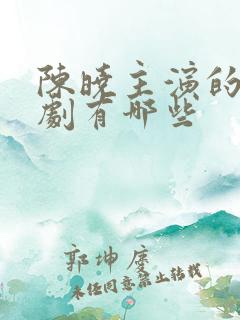 陳曉主演的
劇有哪些
郭坤度
未经同意禁止转载